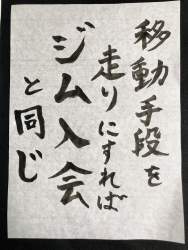 移動手段を
走りにすれば
ジム入会
と同じ